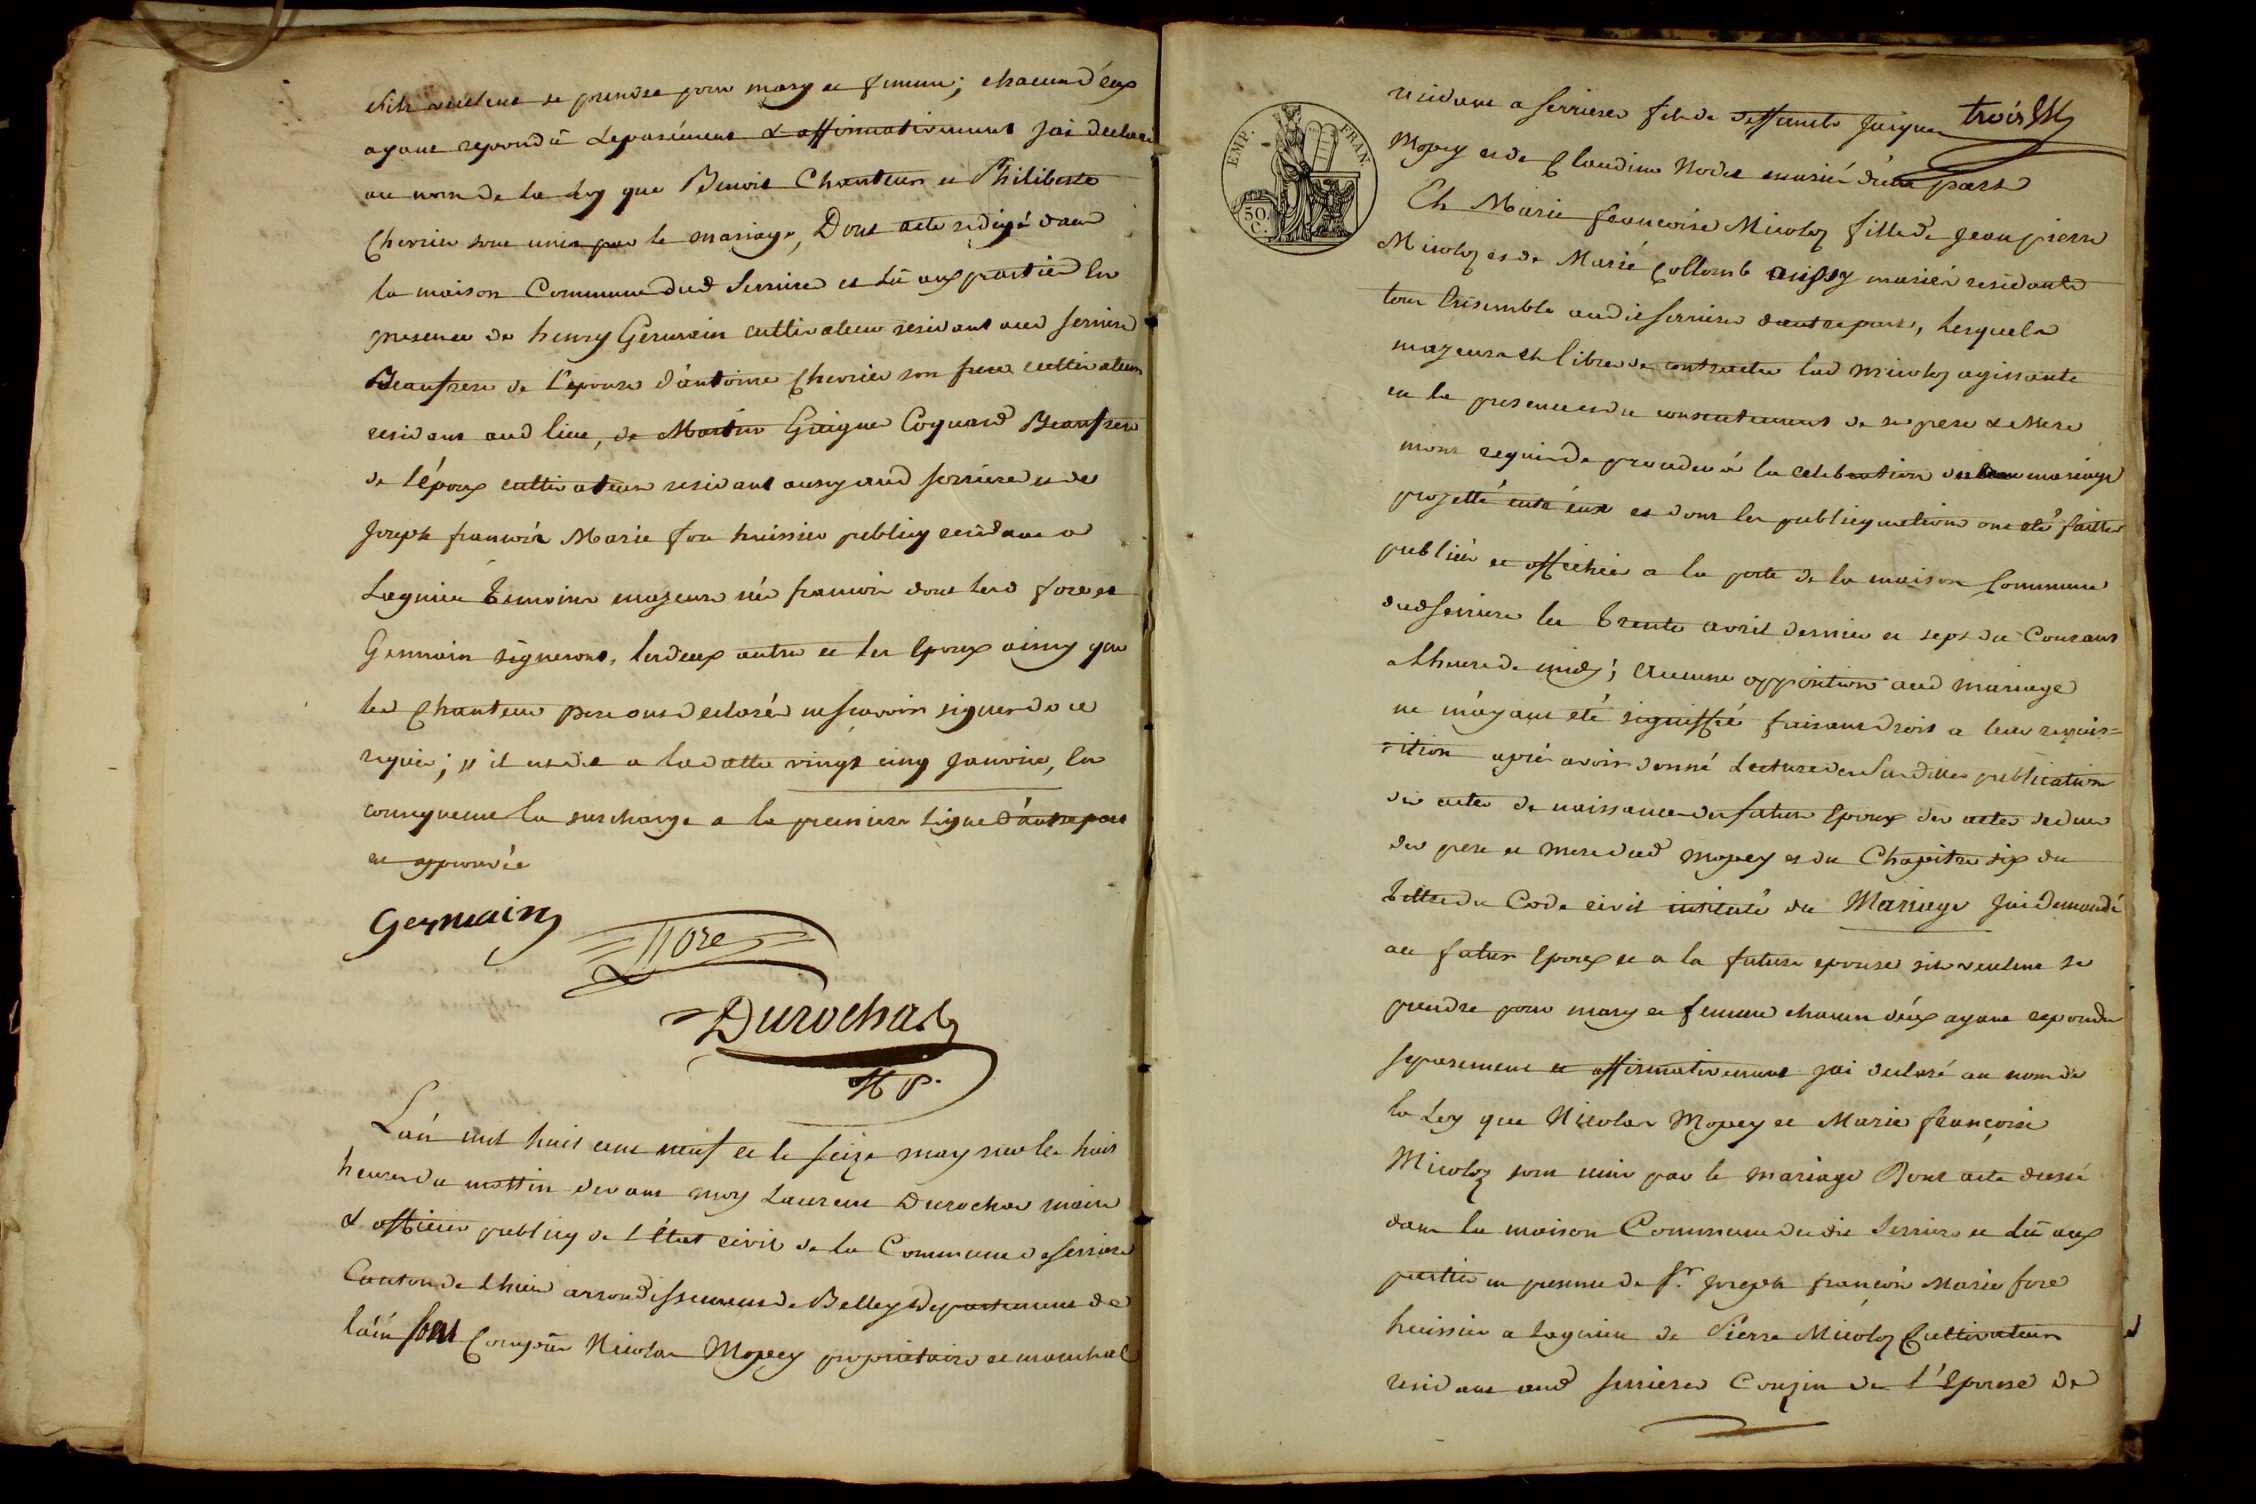 s'ils veulent se prendre pour mary et femme; chacun d'eux
ayant repondu separément & affirmativement jai declaré
au nom de la Loy que Benoit Chanteur et Philiberte
Chevrier sont unis par le mariage, Dont acte redigé dans
la maison Commune dud Serriere et Lû aux parties En
presence de henry Germain cultivateur residant aud serriere
Beaufrere de l'epouse d'antoine Chevrier son frere cultivateur
residant aud lieu, de Martin Guigue Coquard Beaufrere
de l'époux cultivateur residant aussy aud serriere et de
Joseph francois Marie fore huissier publiq residant a
Lagnieu Temoins majeurs nés francois dont lesd fore et
Germain signeront, les deux autre et les Epoux ainsy que
led Chanteur pere ont declarés ne scavoir signer de ce
requis; il est dit a la datte vingt cinq janvier, En
consequence la surcharge a la premiere Ligne d'autre part
est approuvée
Germain
fore
Durochat
L'an mil huit cent neuf et le seize may sur les huit
heures du mattin devant moy Laurent Durochat maire
& officier publiq de l'État civil de la Commune de Serriere
Canton de Lhuis arrondissement de Belley Departement de
l'ain sont Comparu Nicolas Mopey proprietaire et marechal
trois
EMP. FRAN.
50. C.
residant a serrieres fils de deffunts Jacques
Mopey et de Claudine Nodet mariés d'une part
Et Marie francoise Micoloz fille de Jean pierre
Micoloz et de Marie Collomb aussy mariés residante
tous Ensemble audit serrieres d'autre part, Lesquels
majeurs et libre de contracter lad Micoloz agissante
en la presence et du consentement de se pere & Mere
mont requis de proceder à la celebration du mariage
projetté entre eux et dont les publiquations ont eté faittes
publiées et affichées a la porte de la maison Commune
dud serriere les Trente avril dernier et sept du Courant
a Lheure de midy; aucune opposition aud mariage
ne m'ayant eté signiffié faisant droit a leur requis=
ition aprés avoir donné Lecture des susdittes publication
des actes de naissance des futurs Epoux des actes de deces
des pere et mere dud Mopey et du Chapitre six du
Tittre du Code civil intitulé du Mariage jai demandé
au futur Epoux et a la future epouse sils veulent se
prendre pour mary et femme chacun d'eux ayant repondu
separement et affirmativement jai declaré au nom de
la Loy que Nicolas Mopey et Marie francoise
Micoloz sont unis par le mariage Dont acte dressé
dans la maison Commune du dit Serriere et Lû aux
parties en presence de Sr. Joseph francois Marie fore
huissier a Lagnieu de Pierre Micoloz Cultivateur
residant aud serrieres Couzin de l'Epouse de